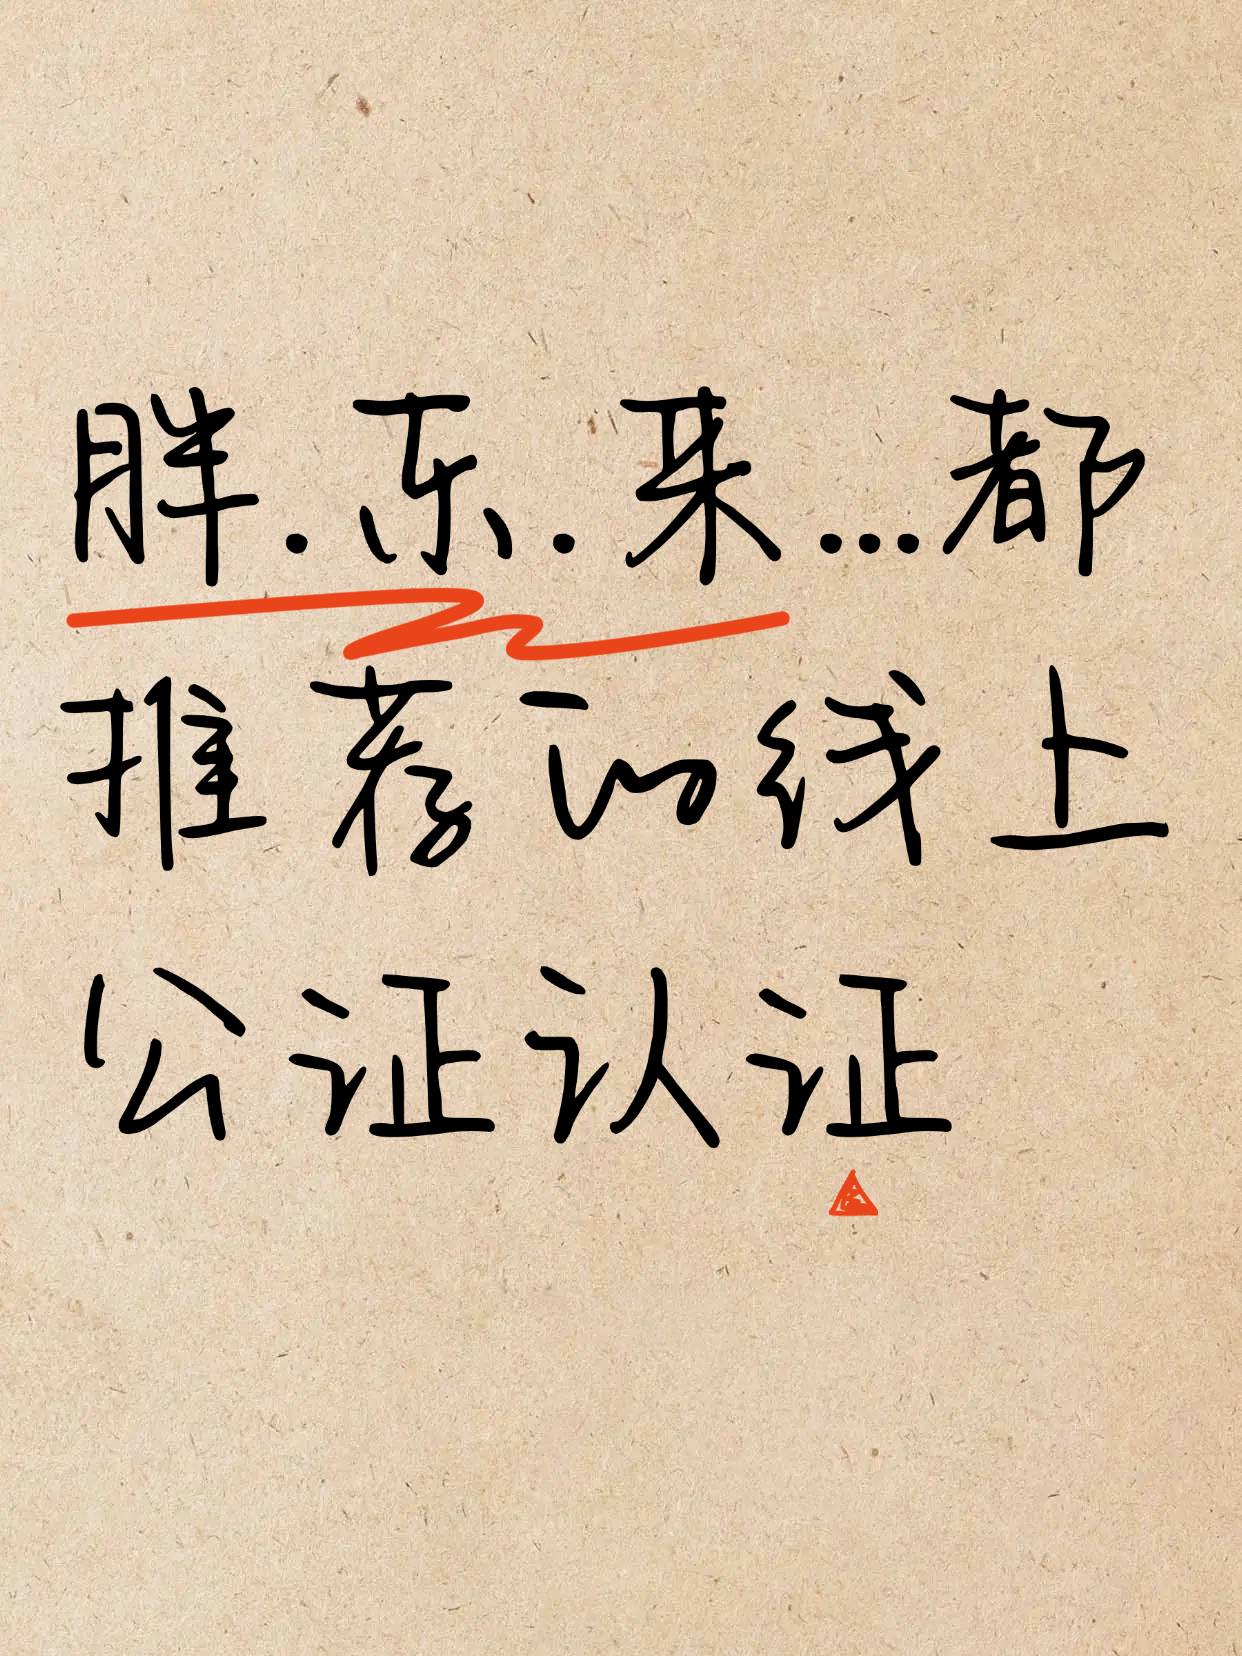 胖.东.来...都
推荐的线上
公证认证